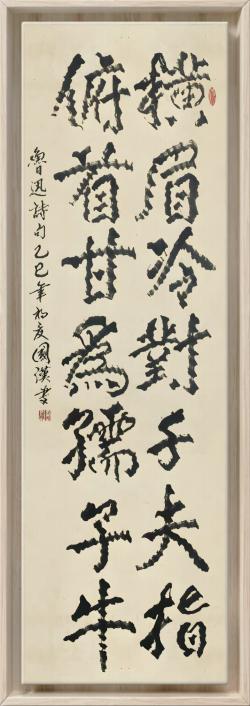 橫眉冷對千夫指
俯首甘為孺子牛
魯迅詩句乙巳年初夏國漢書